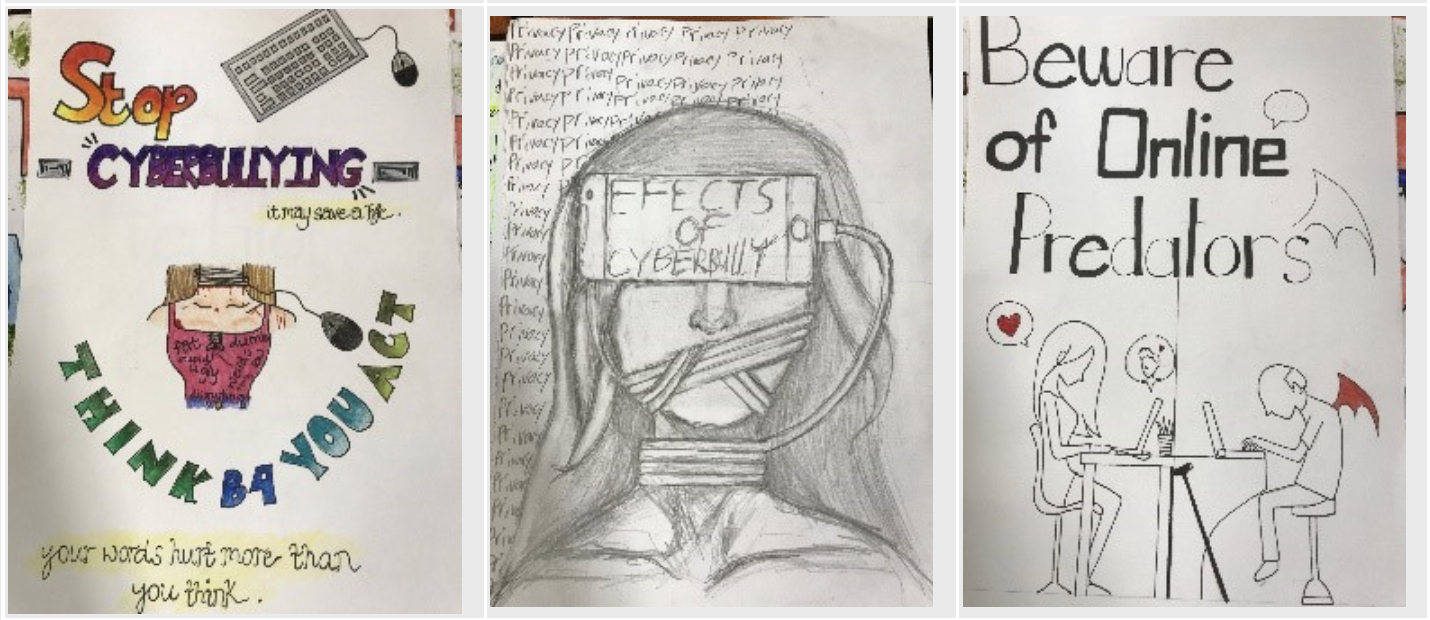 Stop
CYBERBULLYING
it may save a life.
fat dumb
stupid
ugly
THINK B4 YOU ACT
your words hurt more than
you think.
Privacy Privacy Privacy Privacy Privacy
Privacy Privacy Privacy Privacy Privacy
Privacy Privacy Privacy Privacy Privacy
Privacy Privacy Privacy Privacy Privacy
Privacy Privacy Privacy
Privacy Privacy
Privacy
Privacy
Privacy
Privacy
Privacy
Privacy
Privacy
Privacy
Privacy
Privacy
Privacy
EFFECTS
OF
CYBERBULLY
Beware
of Online
Predators